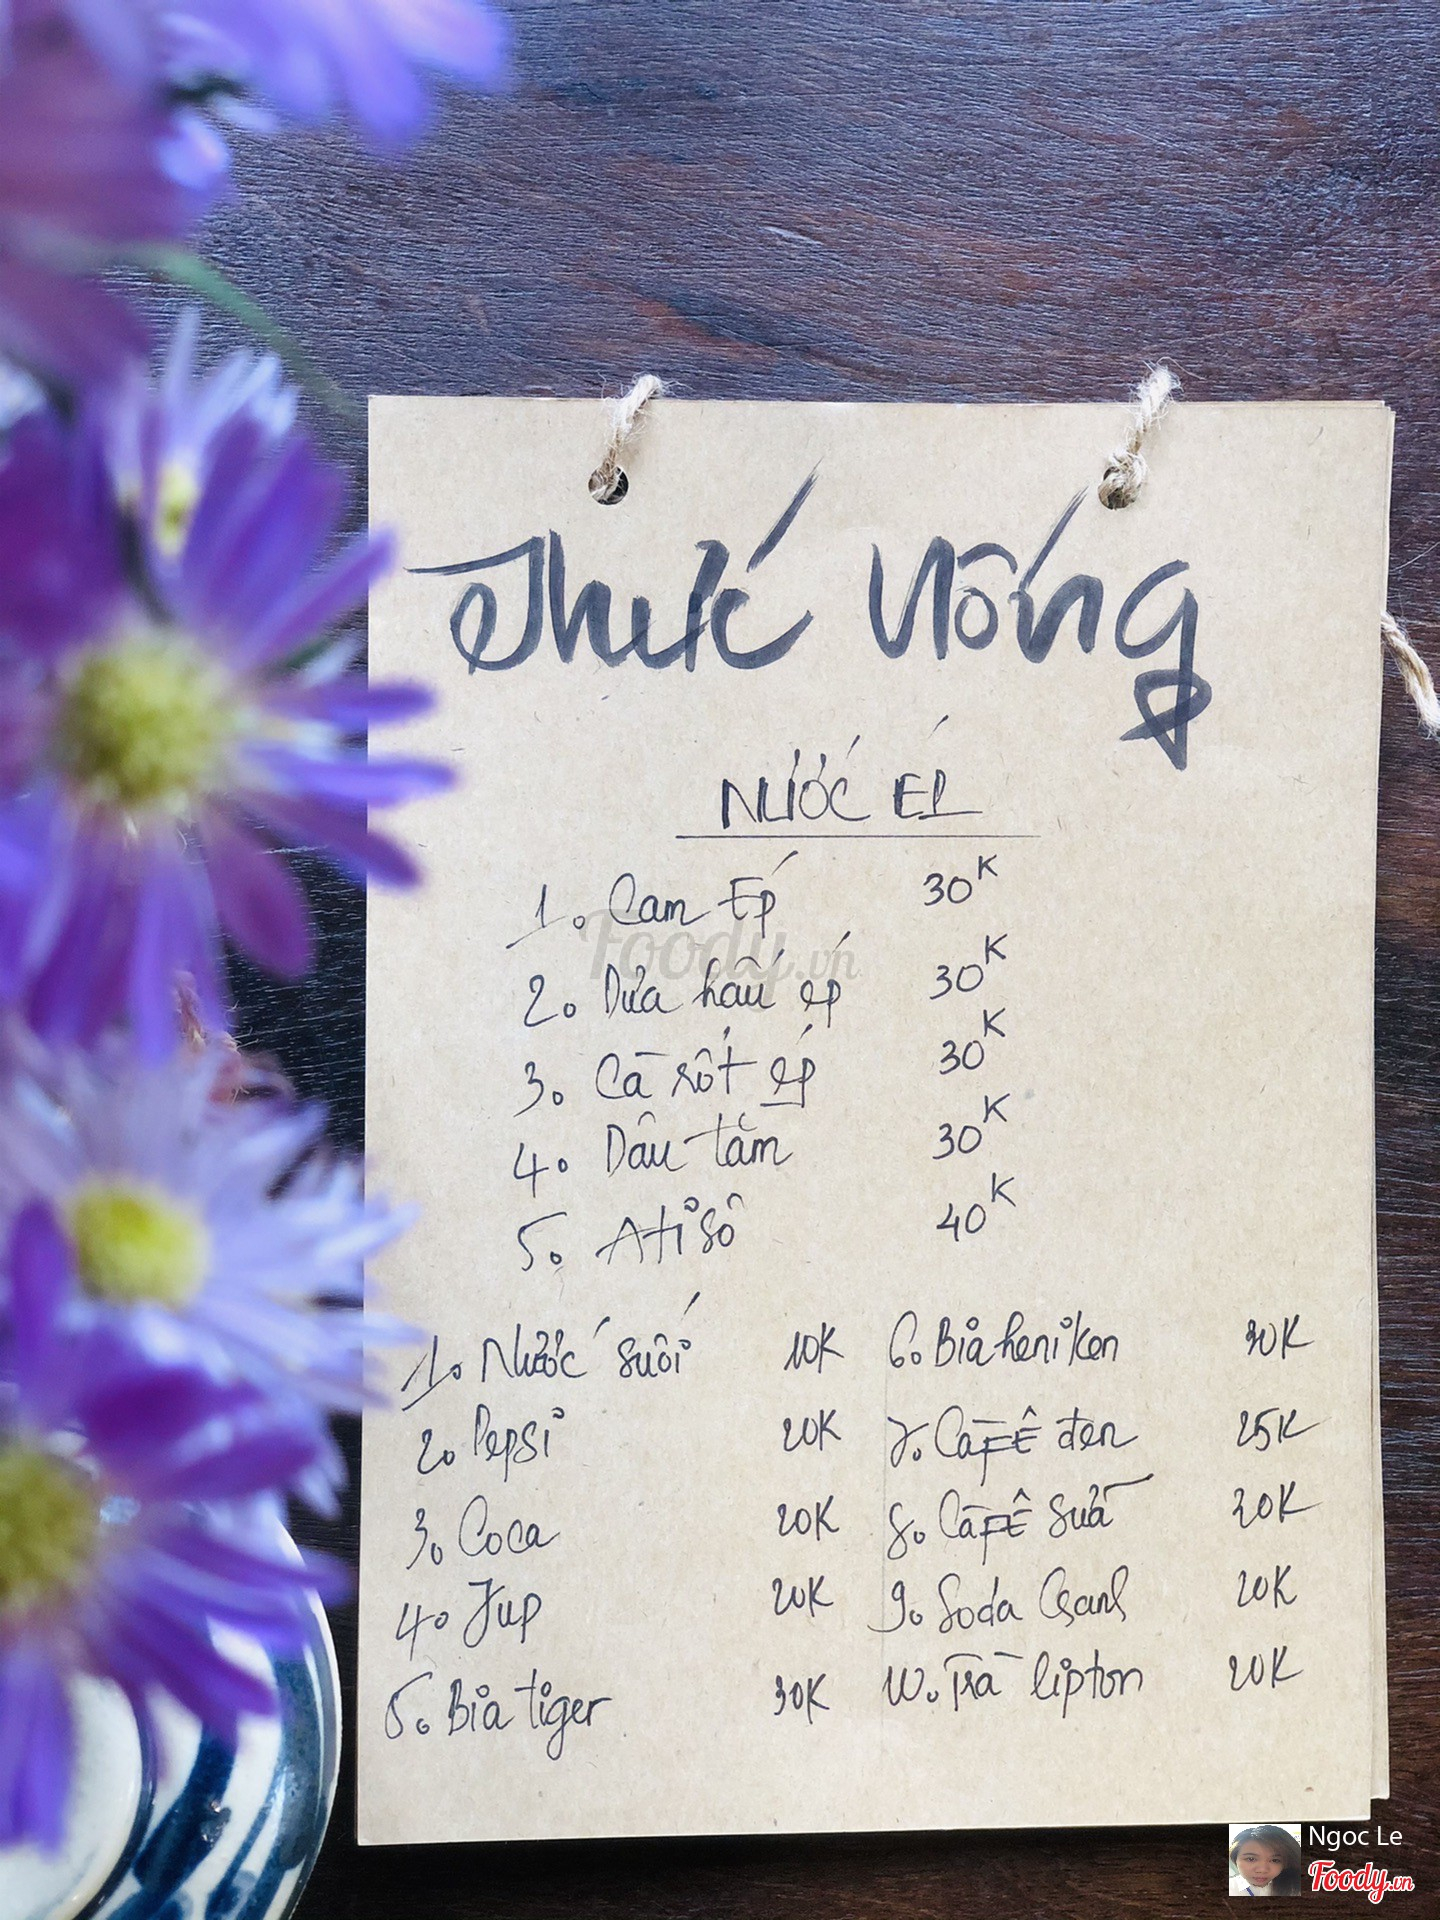 Thức Uống
NƯỚC ÉP
1. Cam Ép 30K
2. Dưa hấu ép 30K
3. Cà rốt ép 30K
4. Dâu tằm 30K
5. Atisô 40K
1. Nước suối 10K
2. Pepsi 20K
3. Coca 20K
4. 7up 20K
5. Bia tiger 30K
6. Bia heniken 30K
7. CàFÊ đen 25K
8. CàFÊ sữa 30K
9. Soda 20K
10. Trà lipton 20K
Foody.vn
Ngoc Le
Foody.vn